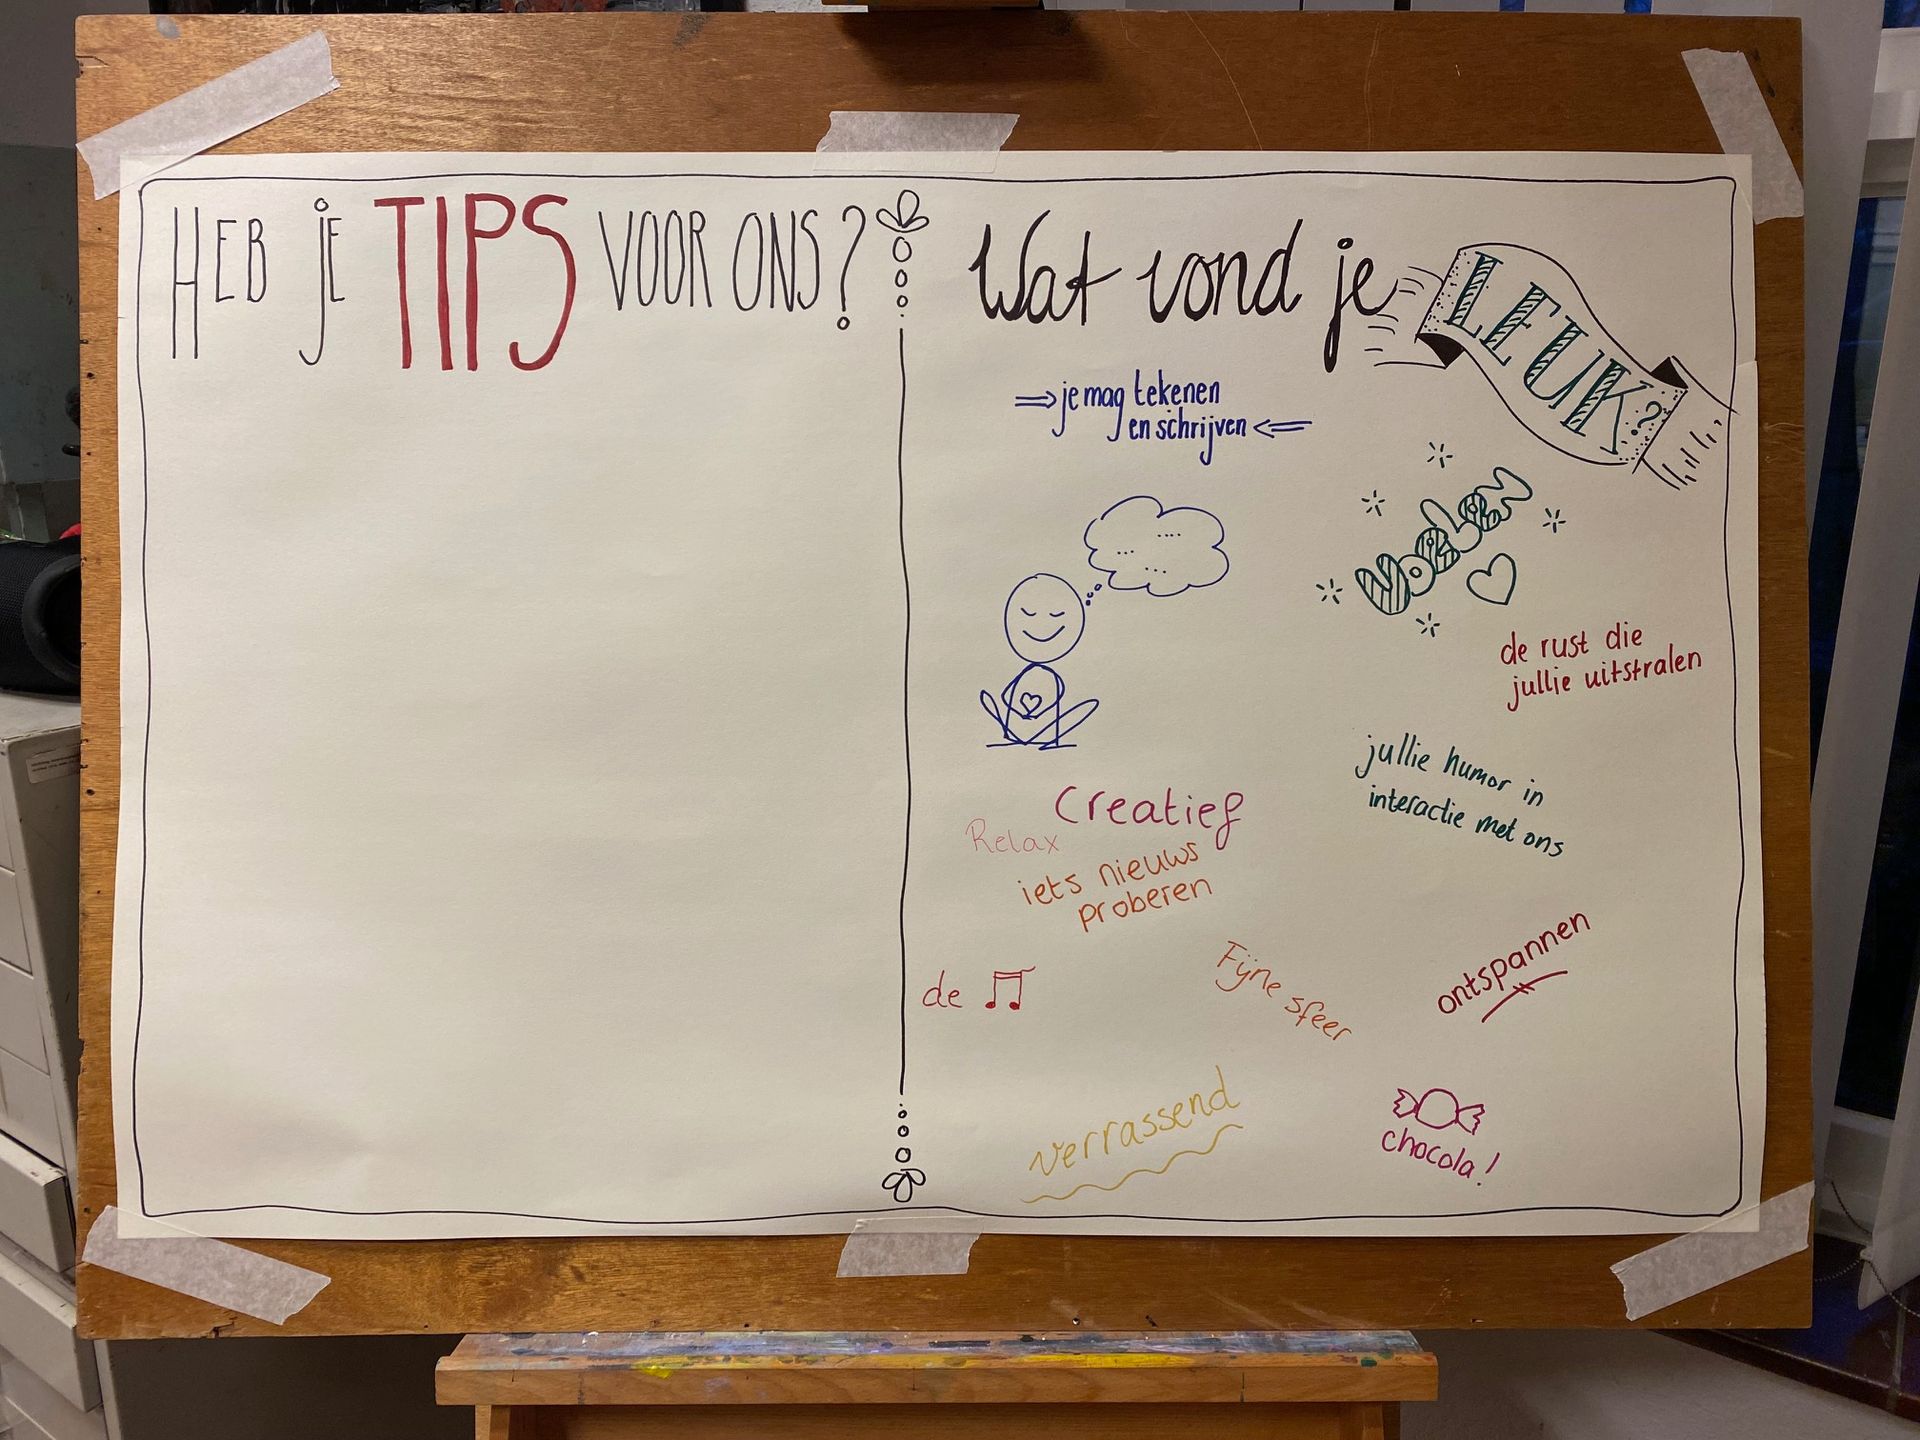 HEB JE TIPS VOOR ONS?
Wat vond je LEUK?
⇒ je mag tekenen
en schrijven ⇐
Voelen
de rust die
jullie uitstralen
jullie humor in
interactie met ons
Creatief
Relax
iets nieuws
proberen
de ♫
Fijne sfeer
ontspannen
verrassend
chocola!